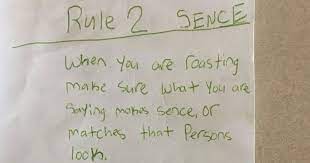 Rule 2 SENCE
When you are roasting
make sure what you are
saying makes sence, or
matches that Persons
look.